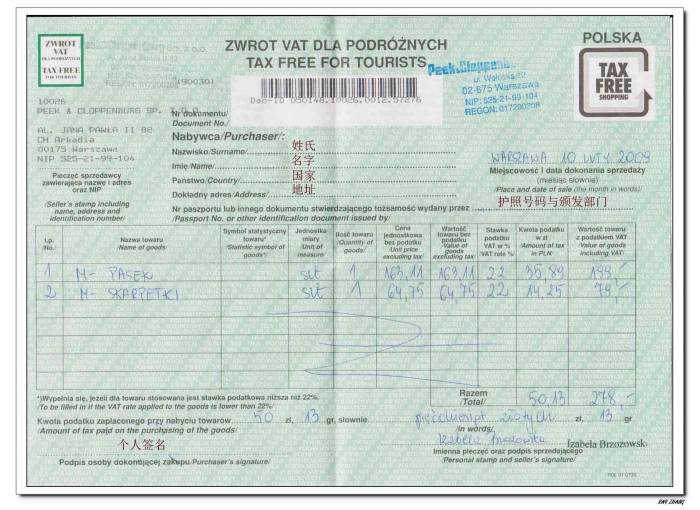 ZWROT
VAT
DLA PODRÓŻNYCH
TAX FREE
FOR TOURISTS
ZWROT VAT DLA PODRÓŻNYCH
TAX FREE FOR TOURISTS
POLSKA
TAX
FREE
SHOPPING
Peek&Cloppenburg
ul. Wołoska 12
02-675 Warszawa
NIP: 525-21-99-104
REGON: 017200208
Doc-ID 050148.10026.0012.57276
10026
PEEK & CLOPPENBURG SP. Z O.O
AL. JANA PAWŁA II 82
CH Arkadia
00175 Warszawa
NIP 525-21-99-104
Pieczęć sprzedawcy
zawierająca nazwę i adres
oraz NIP
/Seller's stamp including
name, address and
identification number/
Nr dokumentu/
Document No./
Nabywca/Purchaser/:
Nazwisko/Surname/: 姓氏
Imię/Name/: 名字
Państwo/Country/: 国家
Dokładny adres/Address/: 地址
WARSZAWA 10 LUTY 2009
Miejscowość i data dokonania sprzedaży
(miesiąc słownie)
/Place and date of sale (the month in words)/
Nr paszportu lub innego dokumentu stwierdzającego tożsamość wydany przez 护照号码与颁发部门
/Passport No. or other identification document issued by/
Lp. /No./
Nazwa towaru /Name of goods/
Symbol statystyczny towaru* /Statistic symbol of goods*/
Jednostka miary /Unit of measure/
Ilość towaru /Quantity of goods/
Cena jednostkowa bez podatku /Unit price excluding tax/
Wartość towaru bez podatku /Value of goods excluding tax/
Stawka podatku VAT w % /VAT rate %/
Kwota podatku w zł /Amount of tax in PLN/
Wartość towaru z podatkiem VAT /Value of goods including VAT/
1 M- PASEK szt 1 163,11 163,11 22 35,89 199,-
2 M- SKARPETKI szt 1 64,75 64,75 22 14,25 79,-
*)Wypełnia się, jeżeli dla towaru stosowana jest stawka podatkowa niższa niż 22%.
/To be filled in if the VAT rate applied to the goods is lower than 22%/
Razem /Total/ 50 13 278,-
Kwota podatku zapłaconego przy nabyciu towarów 50 zł, 13 gr, słownie pięćdziesiąt złotych zł, 13 gr
/Amount of tax paid on the purchasing of the goods/
/in words/
个人签名
Izabela Brzozowska Izabela Brzozowsk
Podpis osoby dokonującej zakupu/Purchaser's signature/
Imienna pieczęć oraz podpis sprzedającego
/Personal stamp and seller's signature/
RAY ZHANG